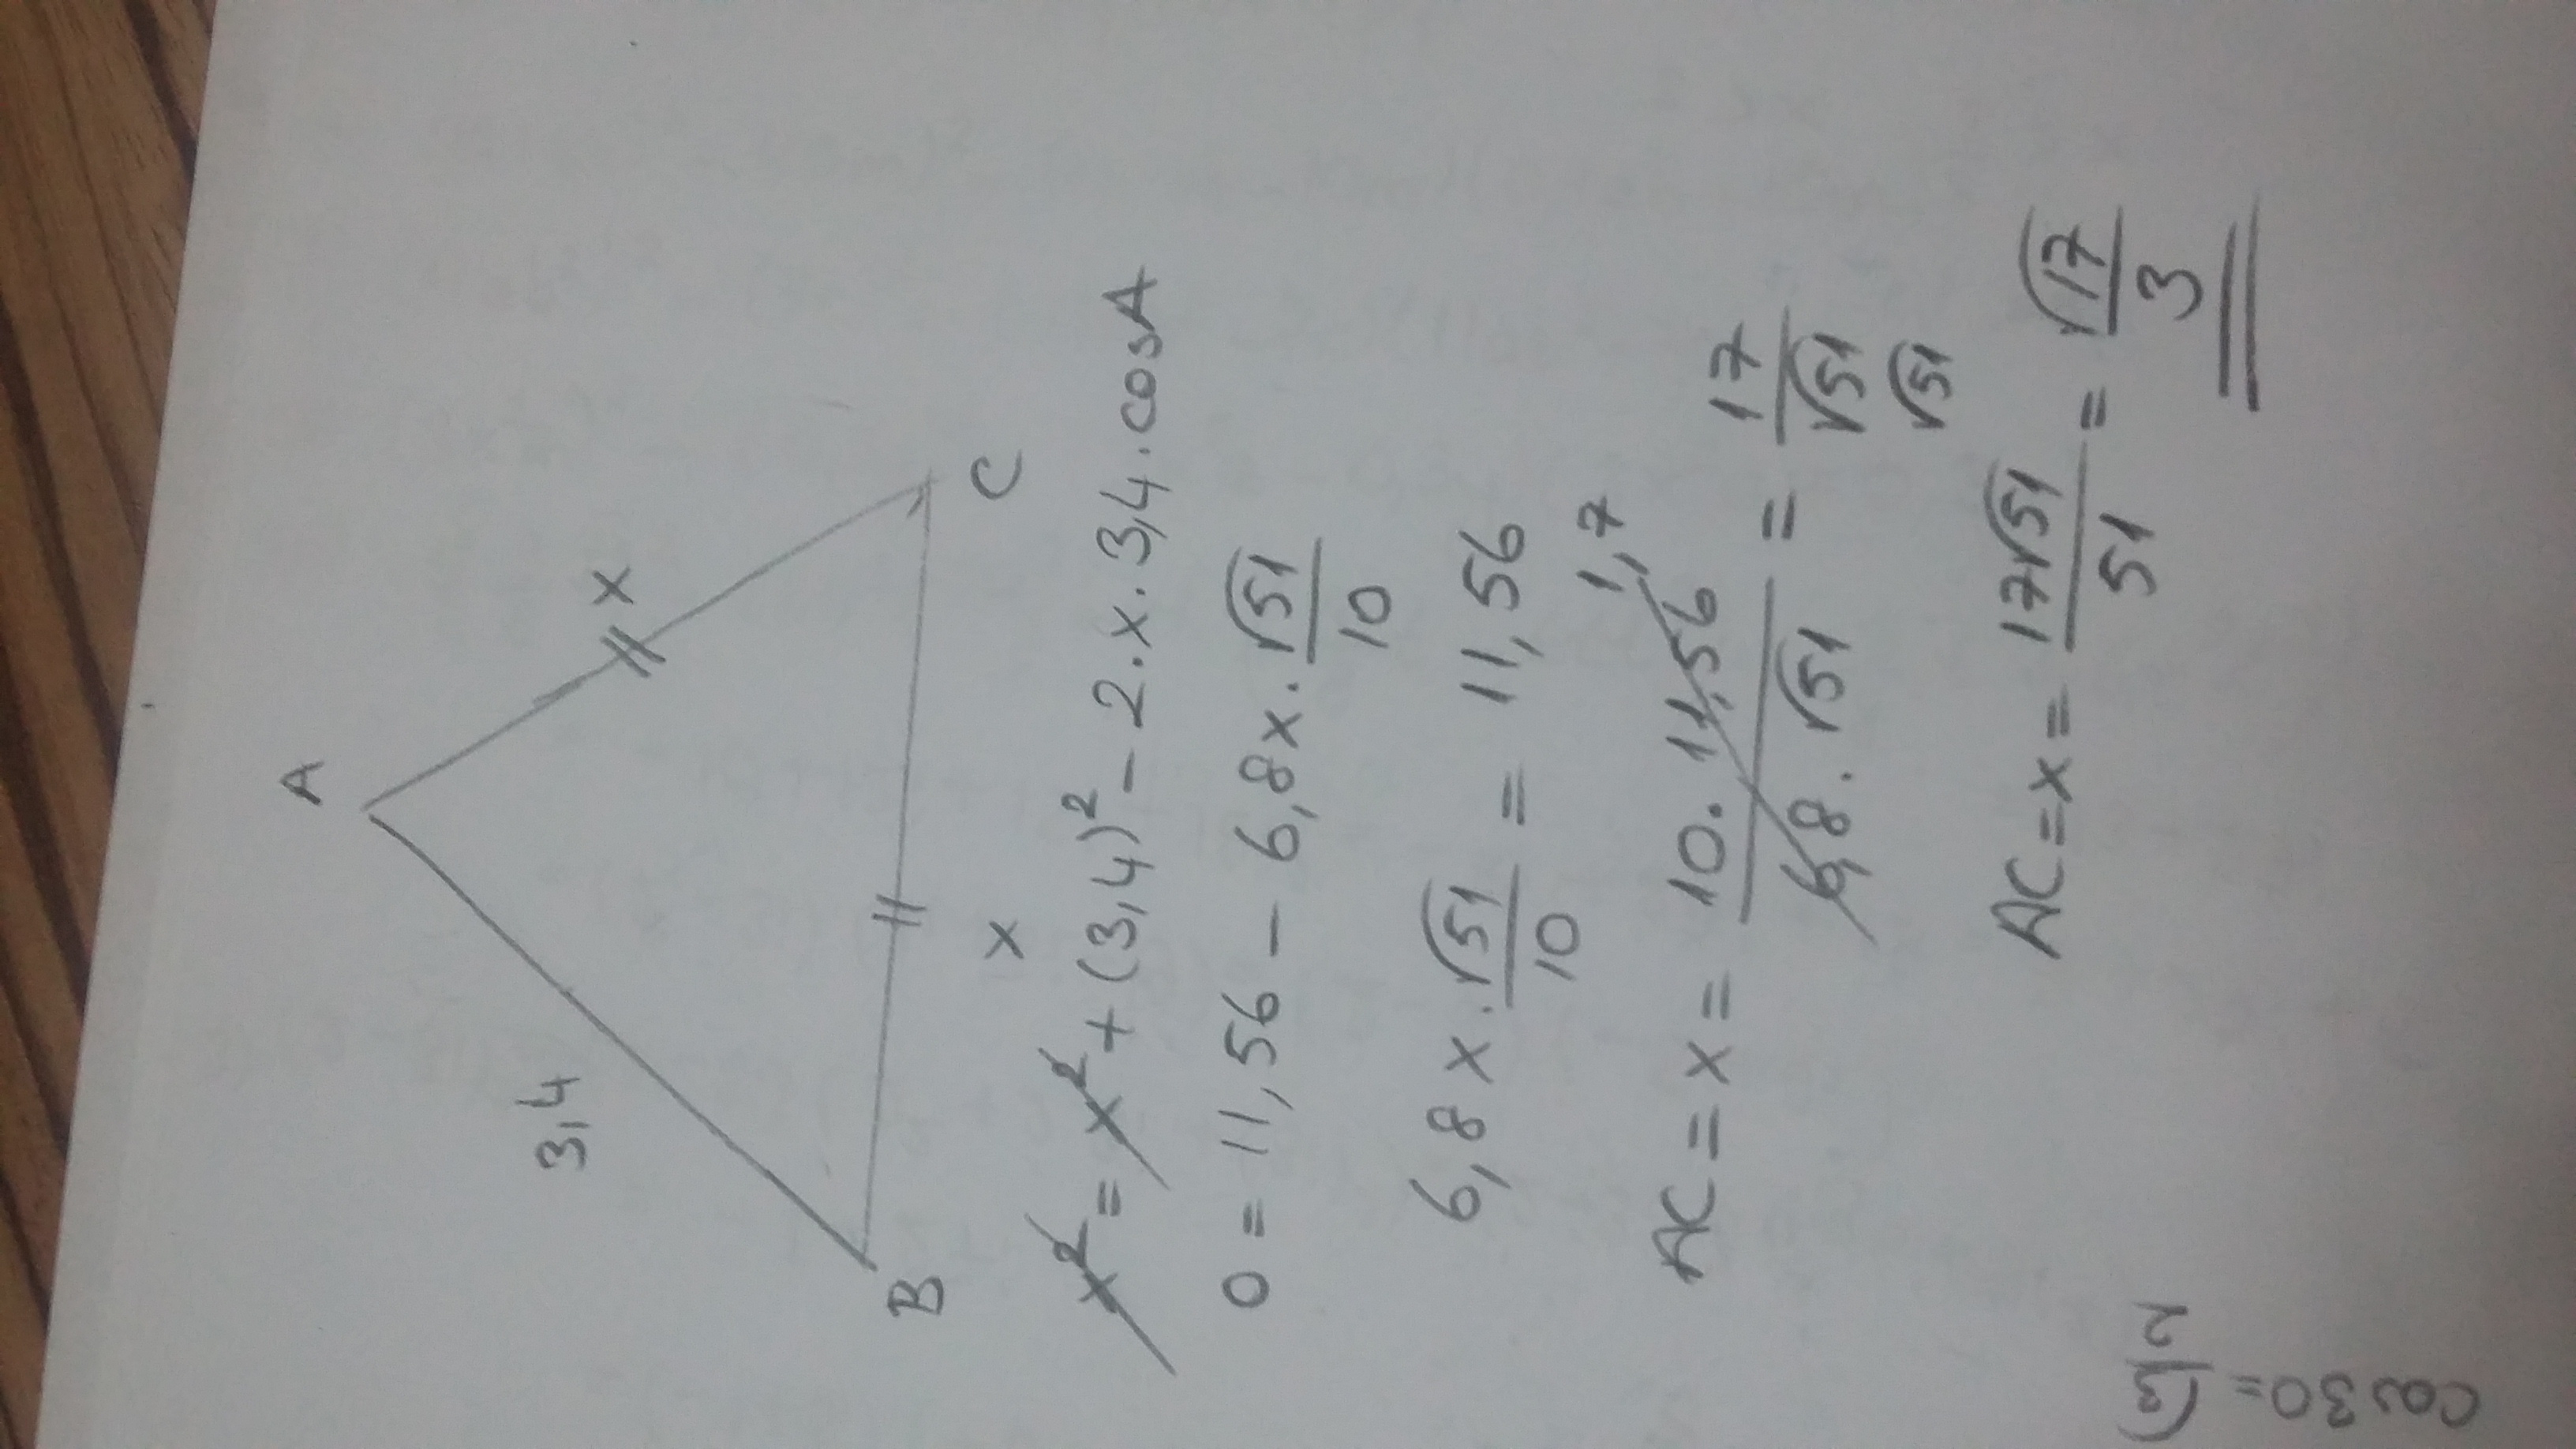 A
3,4
x
B
C
x
x² = x² + (3,4)² - 2 . x . 3,4 . cosA
0 = 11,56 - 6,8x . √51/10
6,8 x . √51/10 = 11,56
1,7
AC = x = 10 . 11,56 / 6,8 . √51 = 17/√51
√51
AC = x = 17√51/51 = √51/3
cos30 = √3/2